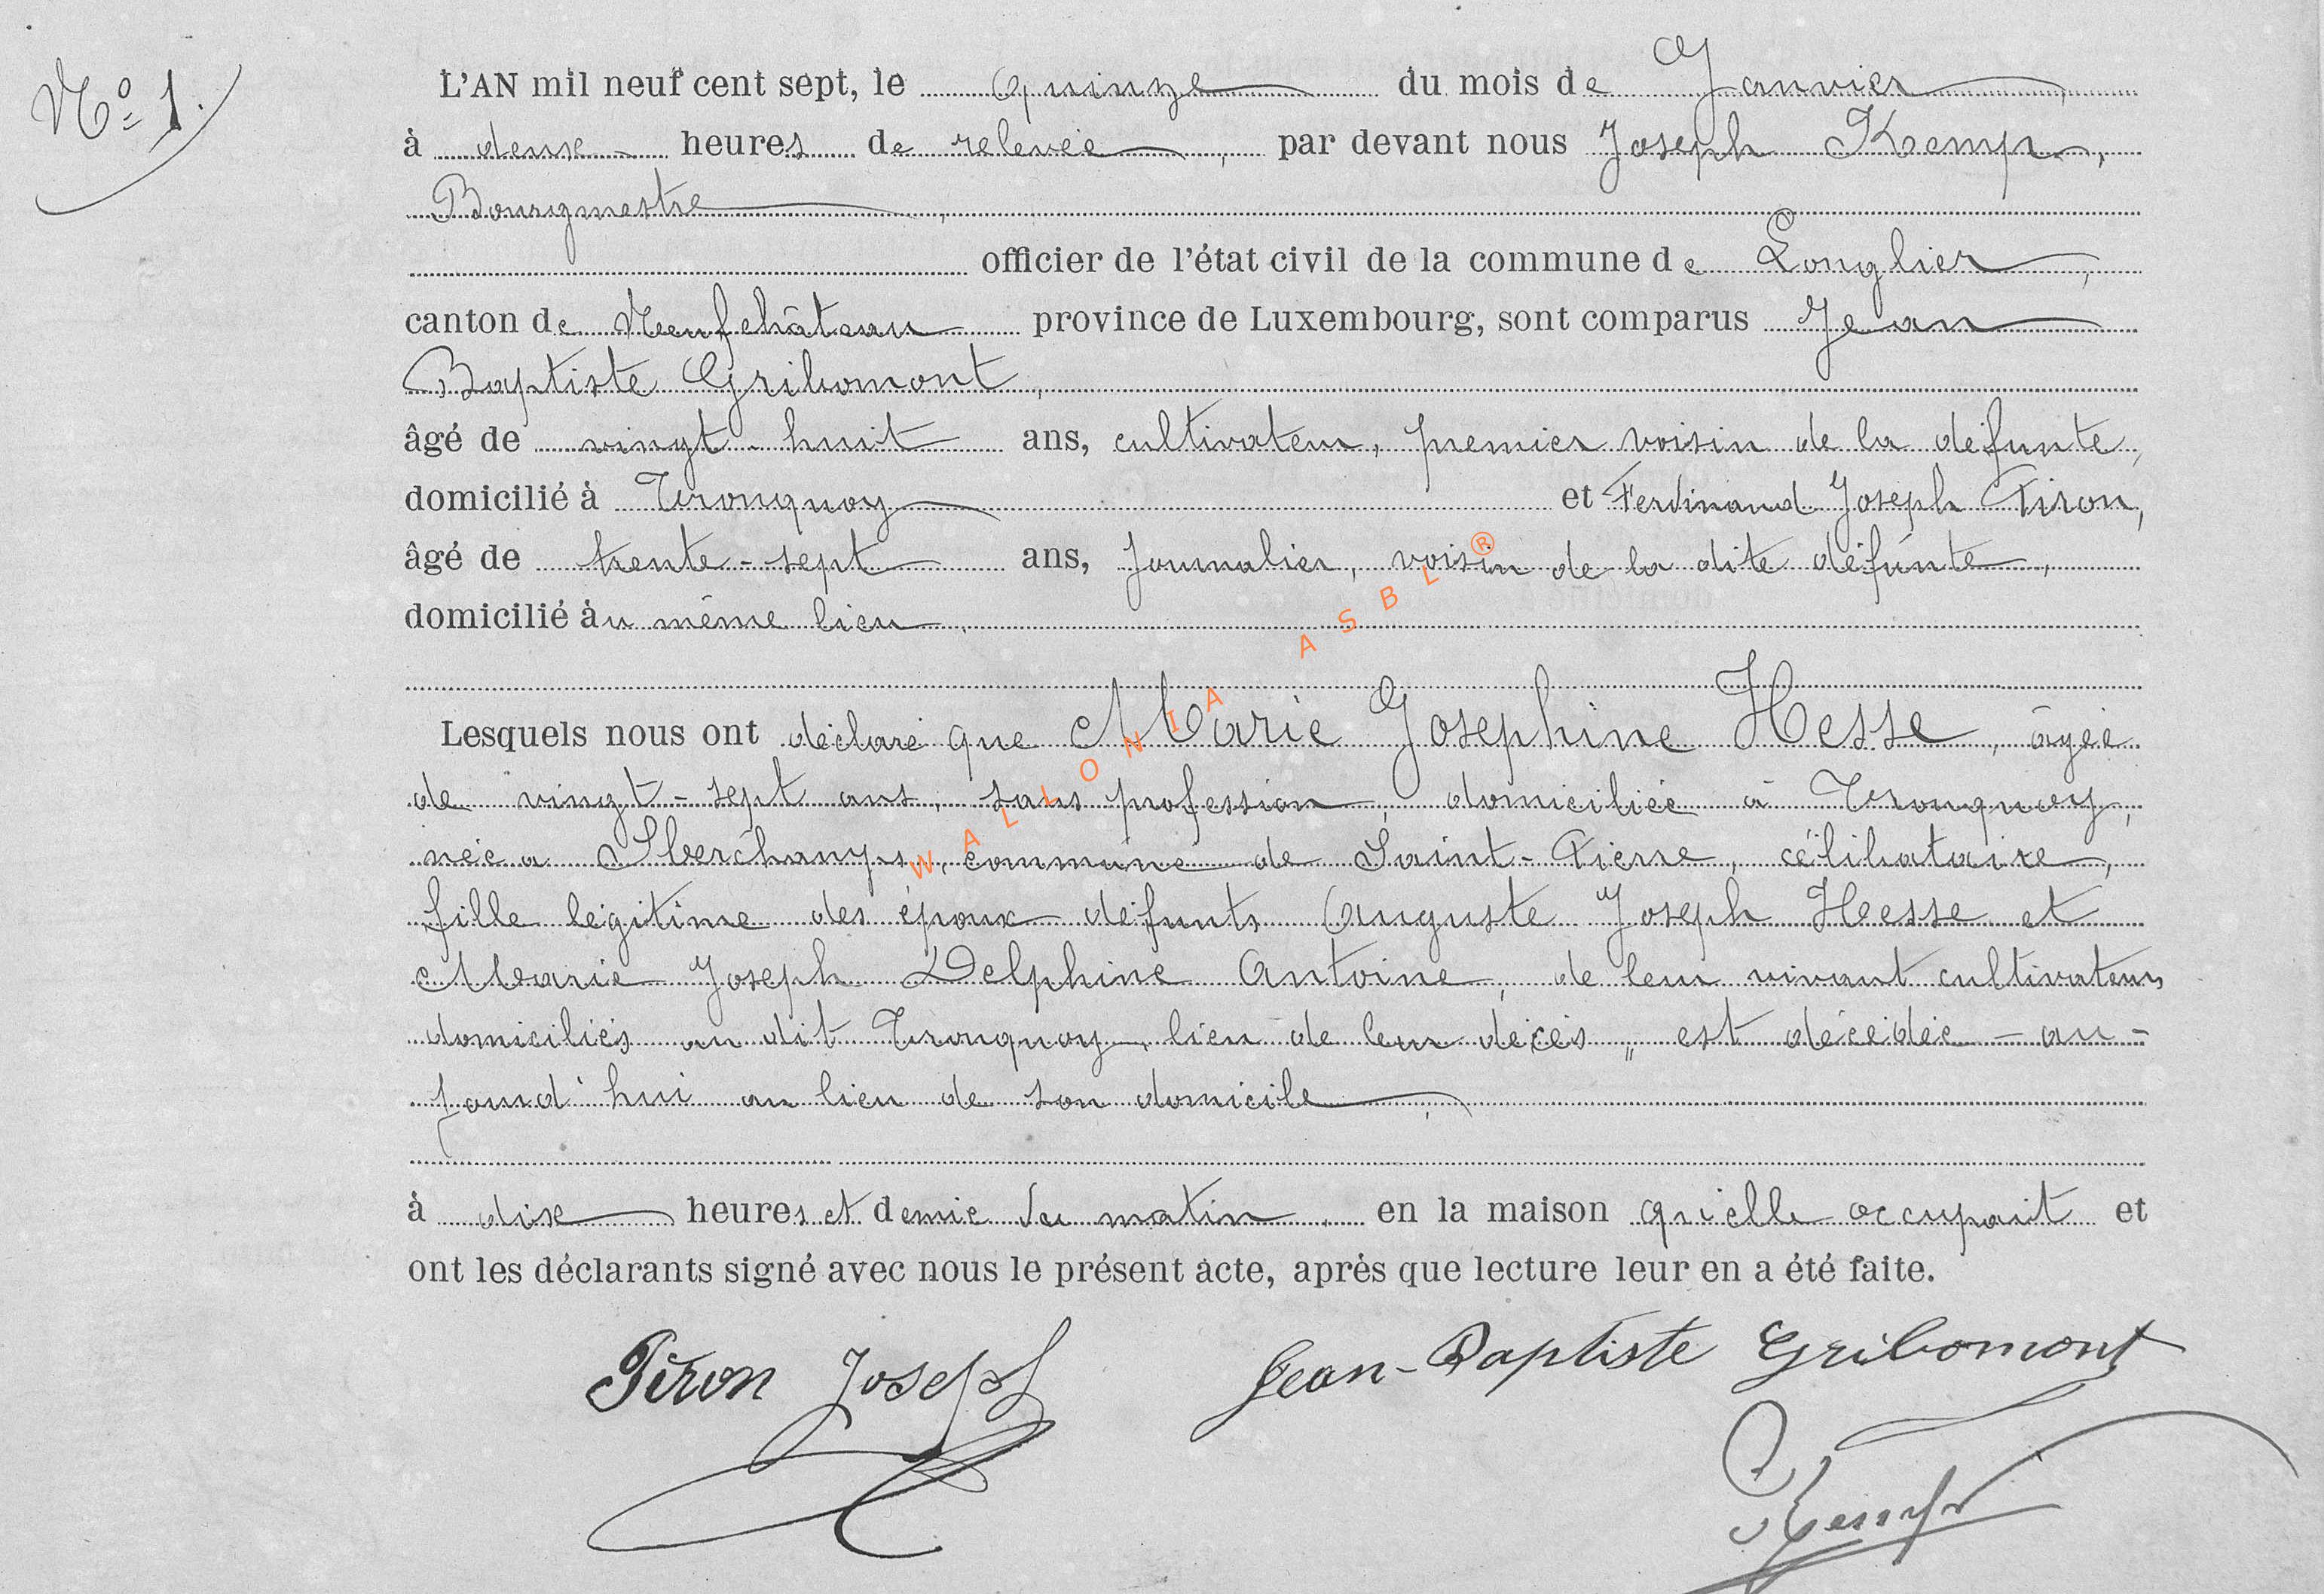 N° 1.
L'AN mil neuf cent sept, le quinze du mois de Janvier,
à deux heures de relevée, par devant nous Joseph Kemp,
Bourgmestre,
officier de l'état civil de la commune de Longlier,
canton de Neufchâteau province de Luxembourg, sont comparus Jean
Baptiste Gribomont,
âgé de vingt-huit ans, cultivateur, premier voisin de la défunte,
domicilié à Tronquoy et Ferdinand Joseph Piron,
âgé de trente-sept ans, Journalier, voisin de la dite défunte,
domicilié àu même lieu.
Lesquels nous ont déclaré que Marie Joséphine Hesse, âgée
de vingt-sept ans, sans profession, domiciliée à Tronquoy,
née a Sberchamps, commune de Saint-Pierre, célibataire,
fille légitime des époux défunts Auguste Joseph Hesse et
Marie Joseph Delphine Antoine, de leur vivant cultivateurs
domiciliés au dit Tronquoy, lieu de leur décès, est décédée - au-
jourd'hui au lieu de son domicile,
à dix heures et demie du matin, en la maison qu'elle occupait et
ont les déclarants signé avec nous le présent acte, après que lecture leur en a été faite.
Piron Joseph Jean-Baptiste Gribomont
Kemp
WALLONIA ASBL ®